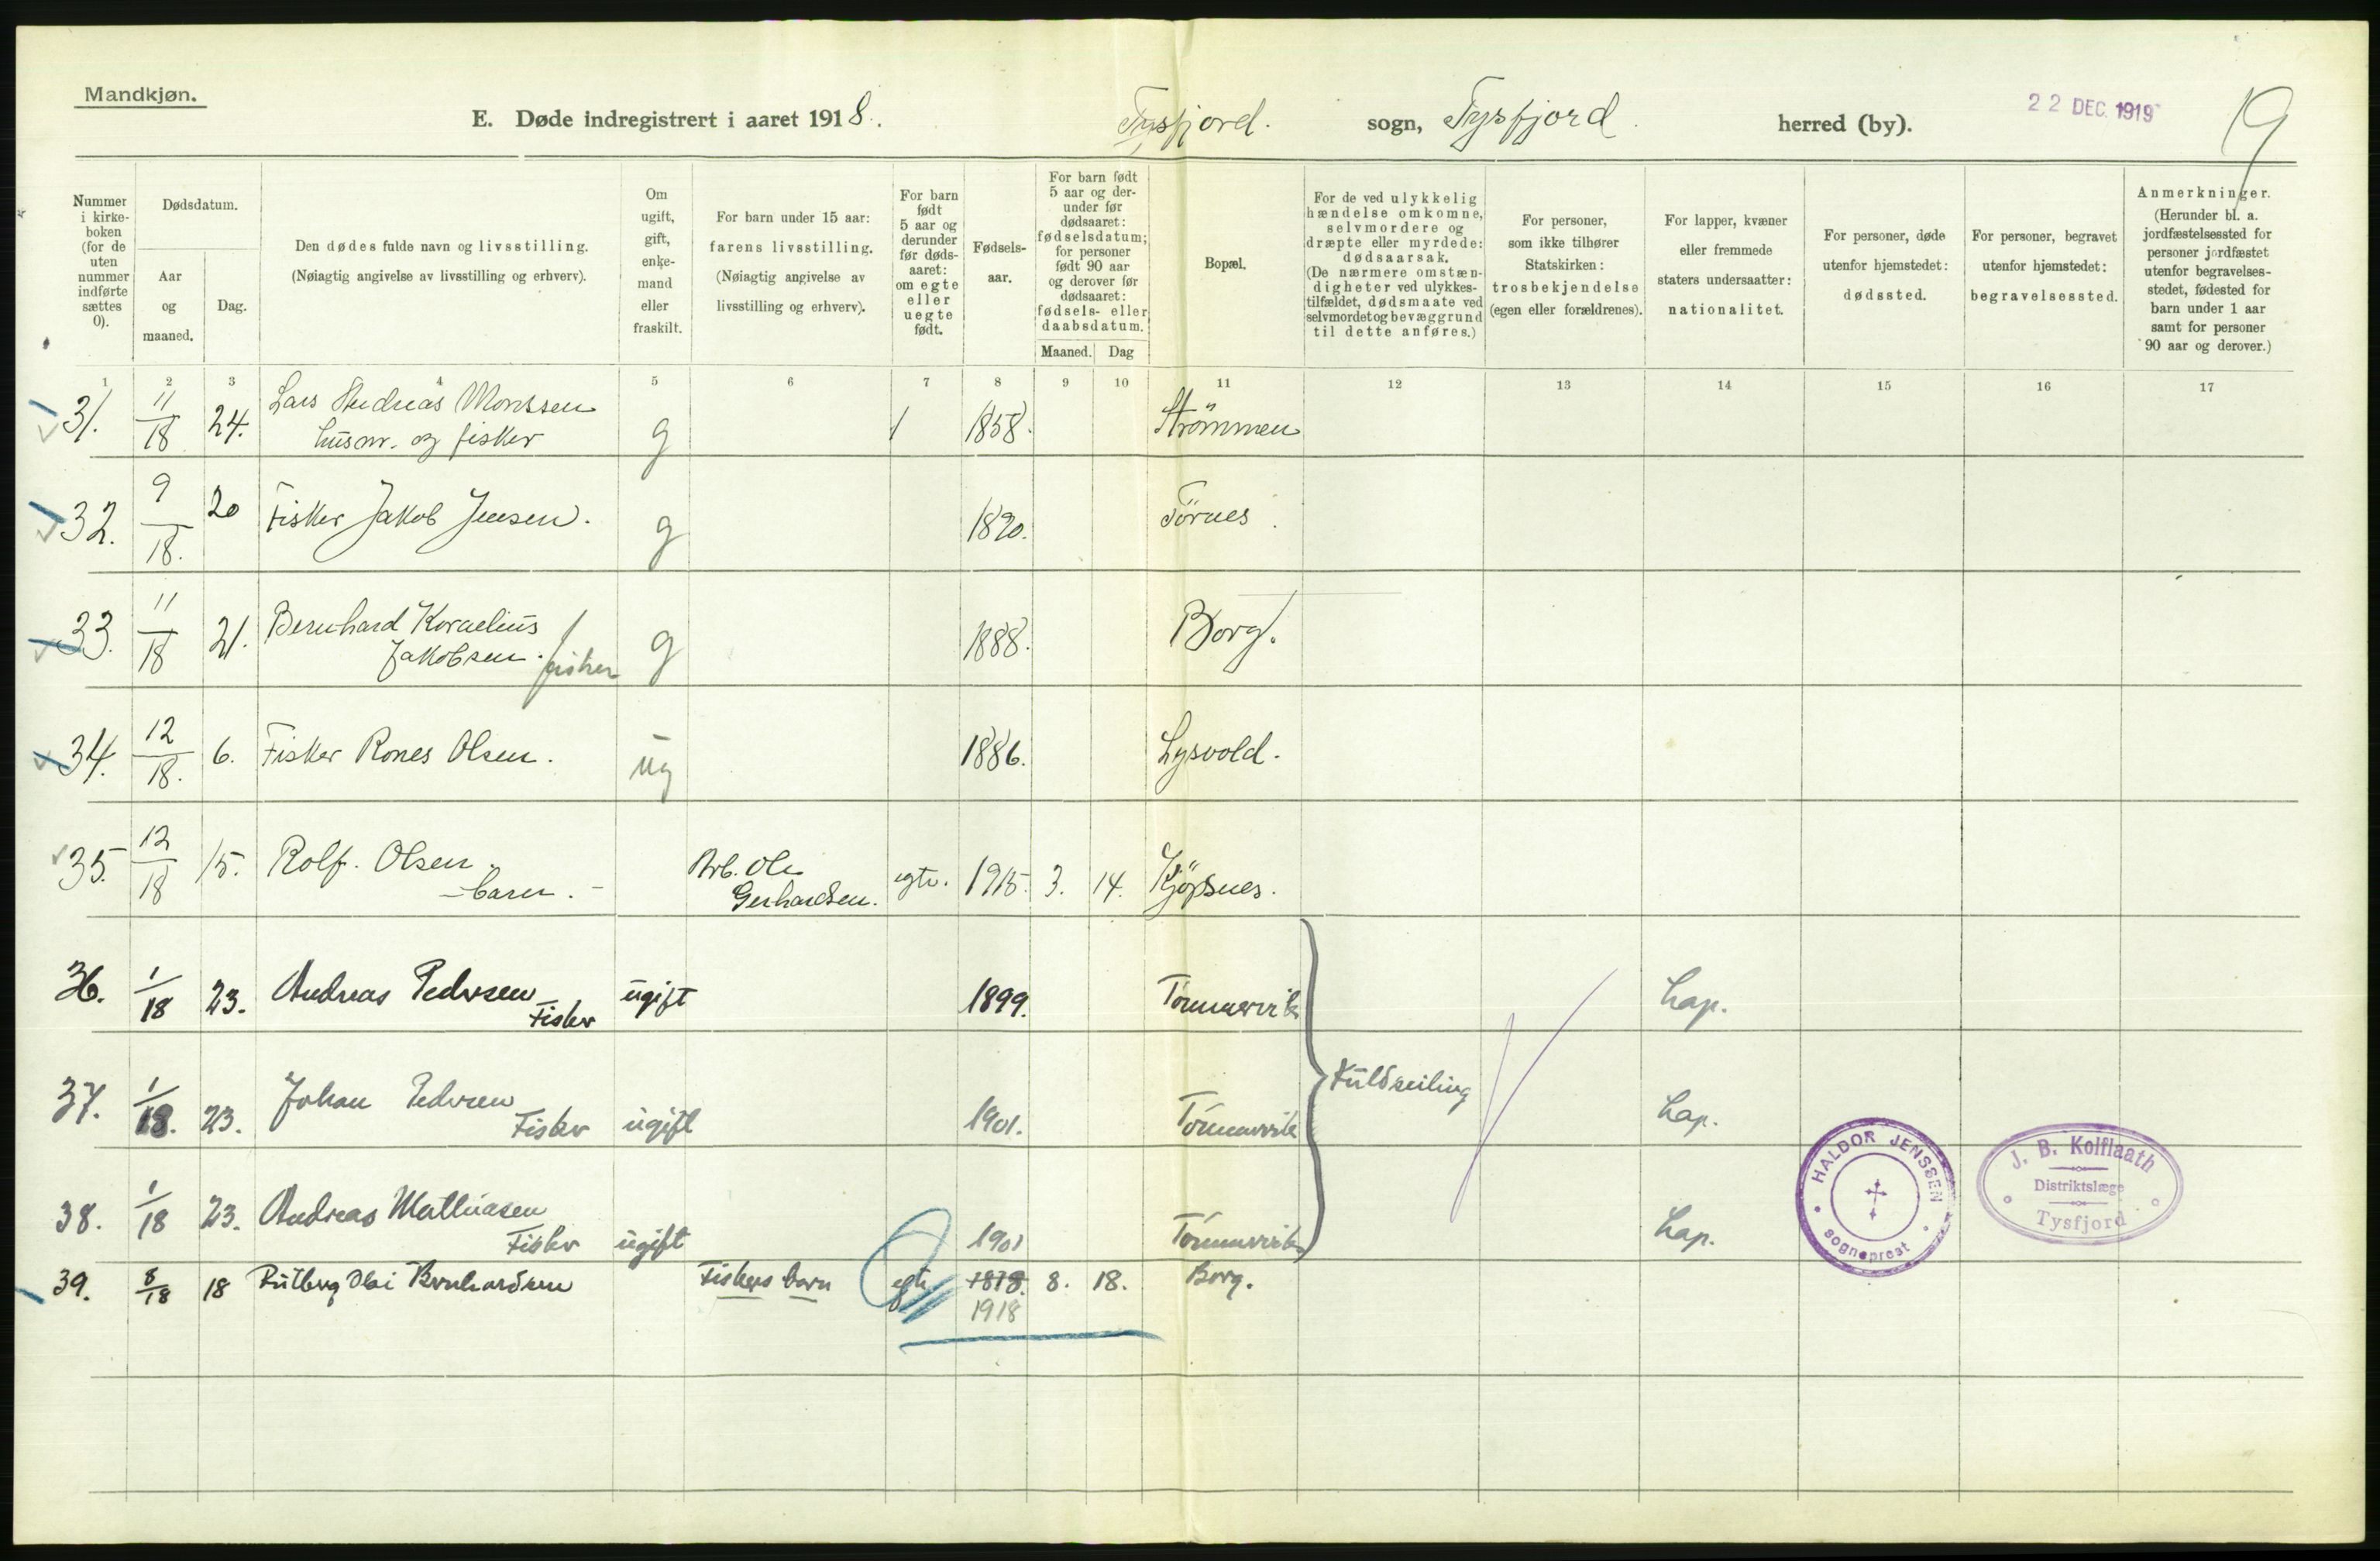 Mandkjøn.
E. Døde indregistrert i aaret 1918. Tysfjord. sogn, Tysfjord. herred (by).
22 DEC. 1919
19
Nummer i kirke-boken (for de uten nummer indførte sættes 0).
Dødsdatum.
Aar og maaned.
Dag.
Den dødes fulde navn og livsstilling.
(Nøiagtig angivelse av livsstilling og erhverv).
Om ugift, gift, enke-mand eller fraskilt.
For barn under 15 aar:
farens livsstilling.
(Nøiagtig angivelse av livsstilling og erhverv).
For barn født 5 aar og derunder før døds-aaret: om egte eller uegte født.
Fødsels-aar.
For barn født 5 aar og der-under før dødsaaret: fødselsdatum; for personer født 90 aar og derover før dødsaaret: fødsels- eller daabsdatum.
Maaned. Dag
Bopæl.
For de ved ulykkelig hændelse omkomne, selvmordere og dræpte eller myrdede: dødsaarsak.
(De nærmere omstæn-digheter ved ulykkes-tilfældet, dødsmaate ved selvmordet og bevæggrund til dette anføres.)
For personer, som ikke tilhører Statskirken: trosbekjendelse (egen eller forældrenes).
For lapper, kvæner eller fremmede staters undersaatter: nationalitet.
For personer, døde utenfor hjemstedet: dødssted.
For personer, begravet utenfor hjemstedet: begravelsessted.
Anmerkninger.
(Herunder bl. a. jordfæstelsessted for personer jordfæstet utenfor begravelses-stedet, fødested for barn under 1 aar samt for personer 90 aar og derover.)
1 2 3 4 5 6 7 8 9 10 11 12 13 14 15 16 17
31. 11/18 24. Lars Andreas Monssen
husm. og fisker g 1 1858. Strömmen
32. 9/18. 20 Fisker Jakob Jensen. g 1890. Törnes.
33. 11/18 21. Bernhard Kornelius
Jakobsen. fisker g 1888. Borg.
34. 12/18. 6. Fisker Rones Olsen. ug 1886. Lysvold.
35. 12/18 15. Rolf. Olsen
- barn. - Arb. Ole
Gerhardsen. egte. 1915. 3. 14. Kjöpsnes.
36. 1/18 23. Andreas Pedersen
Fisker ugift 1899. Tømmervik Lap.
37. 1/18. 23. Johan Pedersen
Fisker ugift 1901. Tømmervik Kuldseiling Lap.
38. 1/18 23. Andreas Mathiasen
Fisker ugift 1901 Tømmervik Lap.
39. 8/18 18 Bernhardsen Fiskers barn egte 1878. 8. 18. Borg.
1918
HALDOR JENSSEN
sogneprest
J. B. Kolflaath
Distriktslæge
Tysfjord